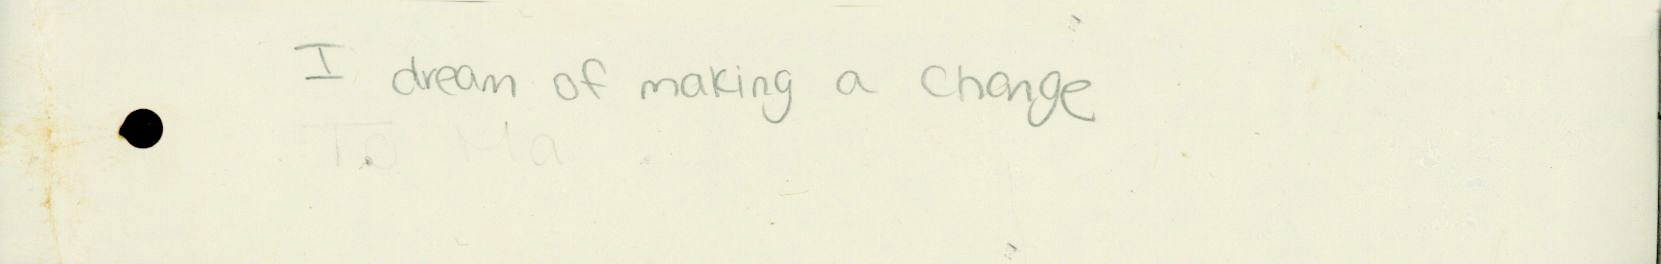 I dream of making a change
To Ma